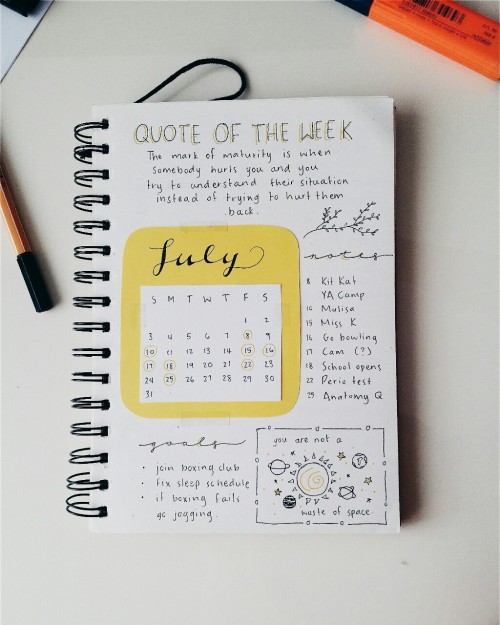 QUOTE OF THE WEEK
The mark of maturity is when
somebody hurts you and you
try to understand their situation
instead of trying to hurt them
back.
July
S M T W T F S
1 2
3 4 5 6 7 8 9
10 11 12 13 14 15 16
17 18 19 20 21 22 23
24 25 26 27 28 29 30
31
notes
8 Kit Kat
YA Camp
10 Malisa
15 Miss K
16 Go bowling
17 Cam (?)
18 School opens
22 Perio test
25 Anatomy Q
goals
• join boxing club
• fix sleep schedule
• if boxing fails
go jogging.
you are not a
waste of space.